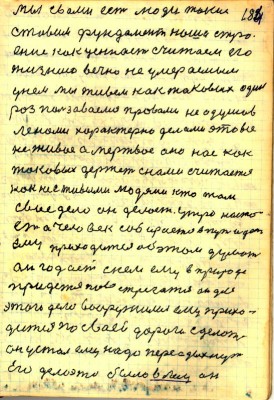 184
мы свами есть люди такие
ставим фундамент наше стро-
ение как ценност считаем его
жизнию вечно не умераемым
унем мы живем как таковых один
роз ползаваемо провами не одушов
леноми характерно делами это все
не живое а мертвое оно нас как
таковых держет снами считается
как нестивыми людями кто там
свое дело он делает. утро наста-
ет а человек собирается в пут идти
Ему приходится об этом думат
он годает скем ему в природе
придется повстречатся он для
этого дела вооружился ему прихо-
дится по сваей дороги сделат
он устал ему надо передыхнут
Его дело это было в ему он